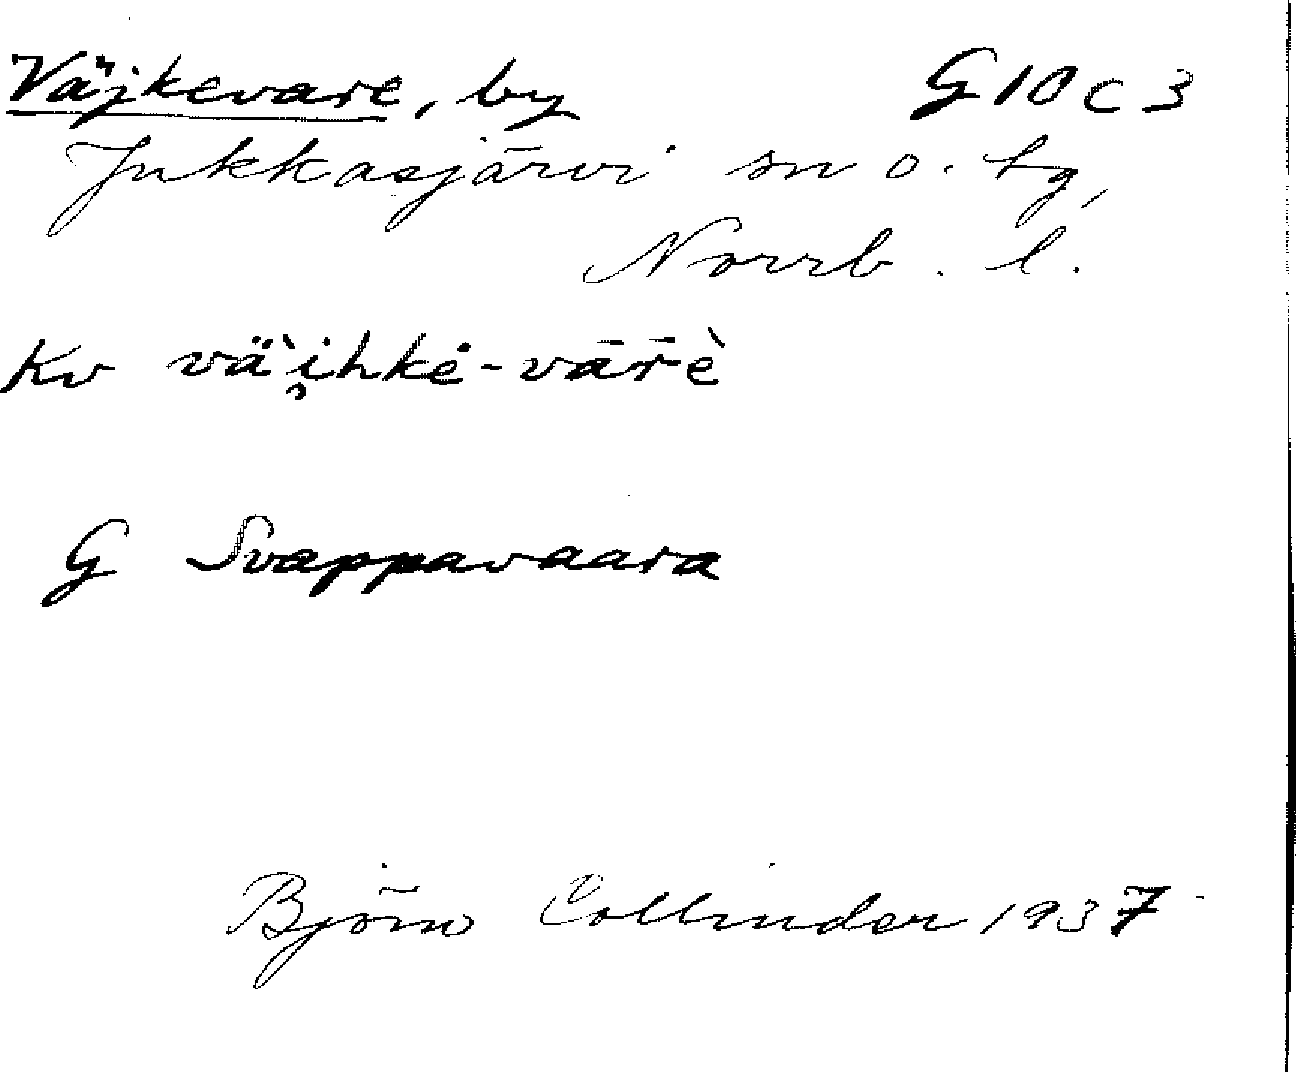 Väjkevare, by G10c3
Jukkasjärvi sn o. tg,
Norrb. l.
Kv vä̀i̯hkė-vārè
G Svappavaara
Björn Collinder 1937